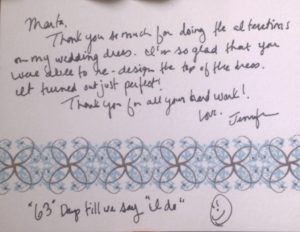 Marta,
Thank you so much for doing the alterations
on my wedding dress. I'm so glad that you
were able to re-design the top of the dress.
It turned out just perfect!
Thank you for all your hard work!
Love,
Jennifer
"63" Days till we say "I do"